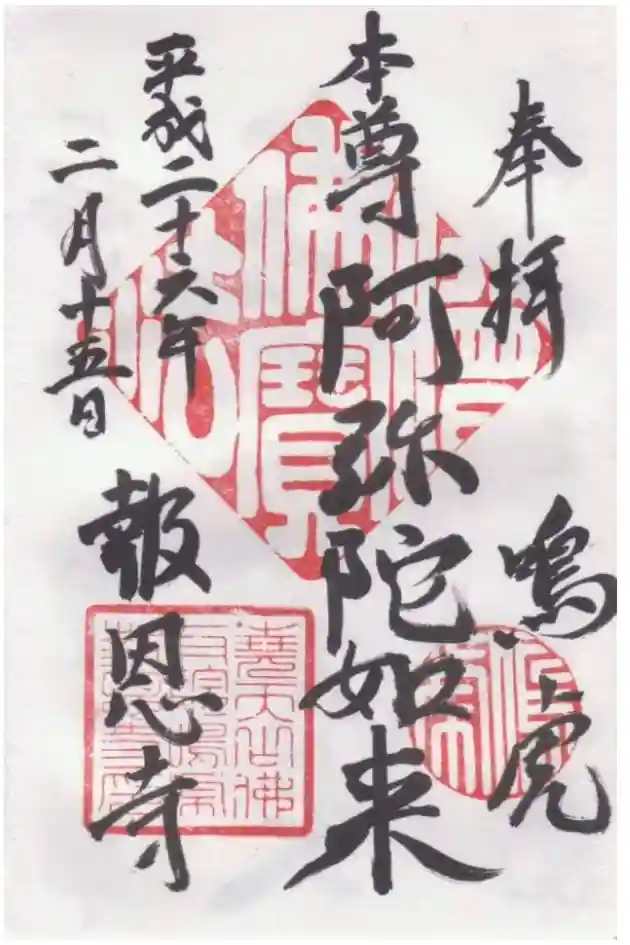 奉拝 鳴虎
本尊 阿弥陀如来
平成二十六年
二月十五日
報恩寺
佛法僧寶